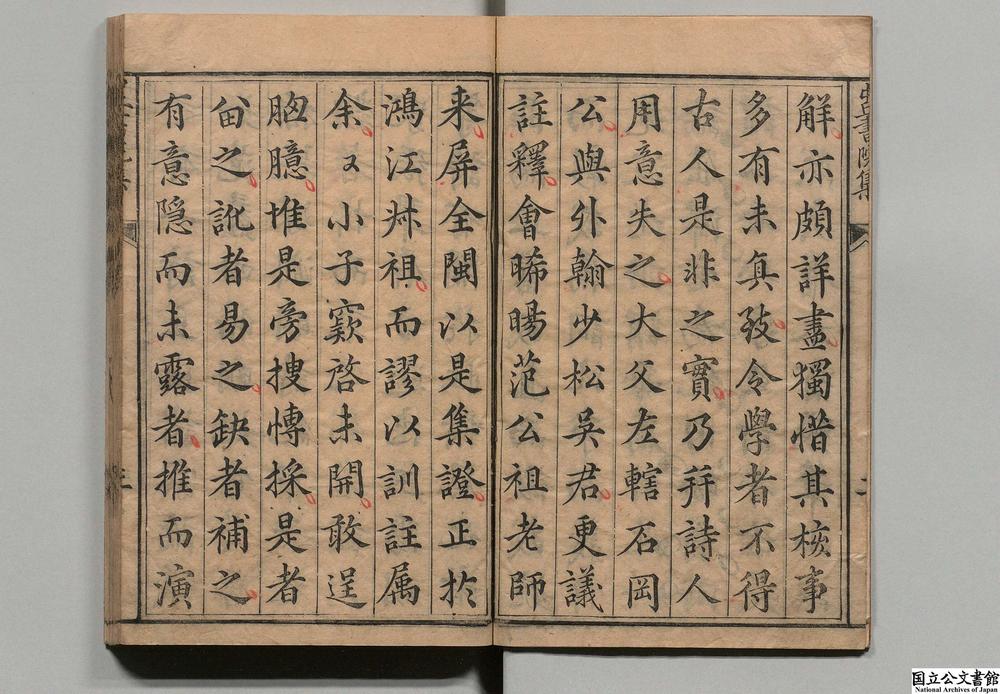 解亦頗詳盡獨惜其核事
多有未真致令學者不得
古人是非之實乃并詩人
用意失之大父左轄石岡
公與外翰少松吳君更議
註釋會晞暘范公祖老師
来屏全閩以是集證正於
鴻江叔祖而謬以訓註属
余々小子窾啓未開敢逞
胸臆惟是旁搜博採是者
留之訛者易之缺者補之
有意隐而未露者推而演
国立公文書館
National Archives of Japan